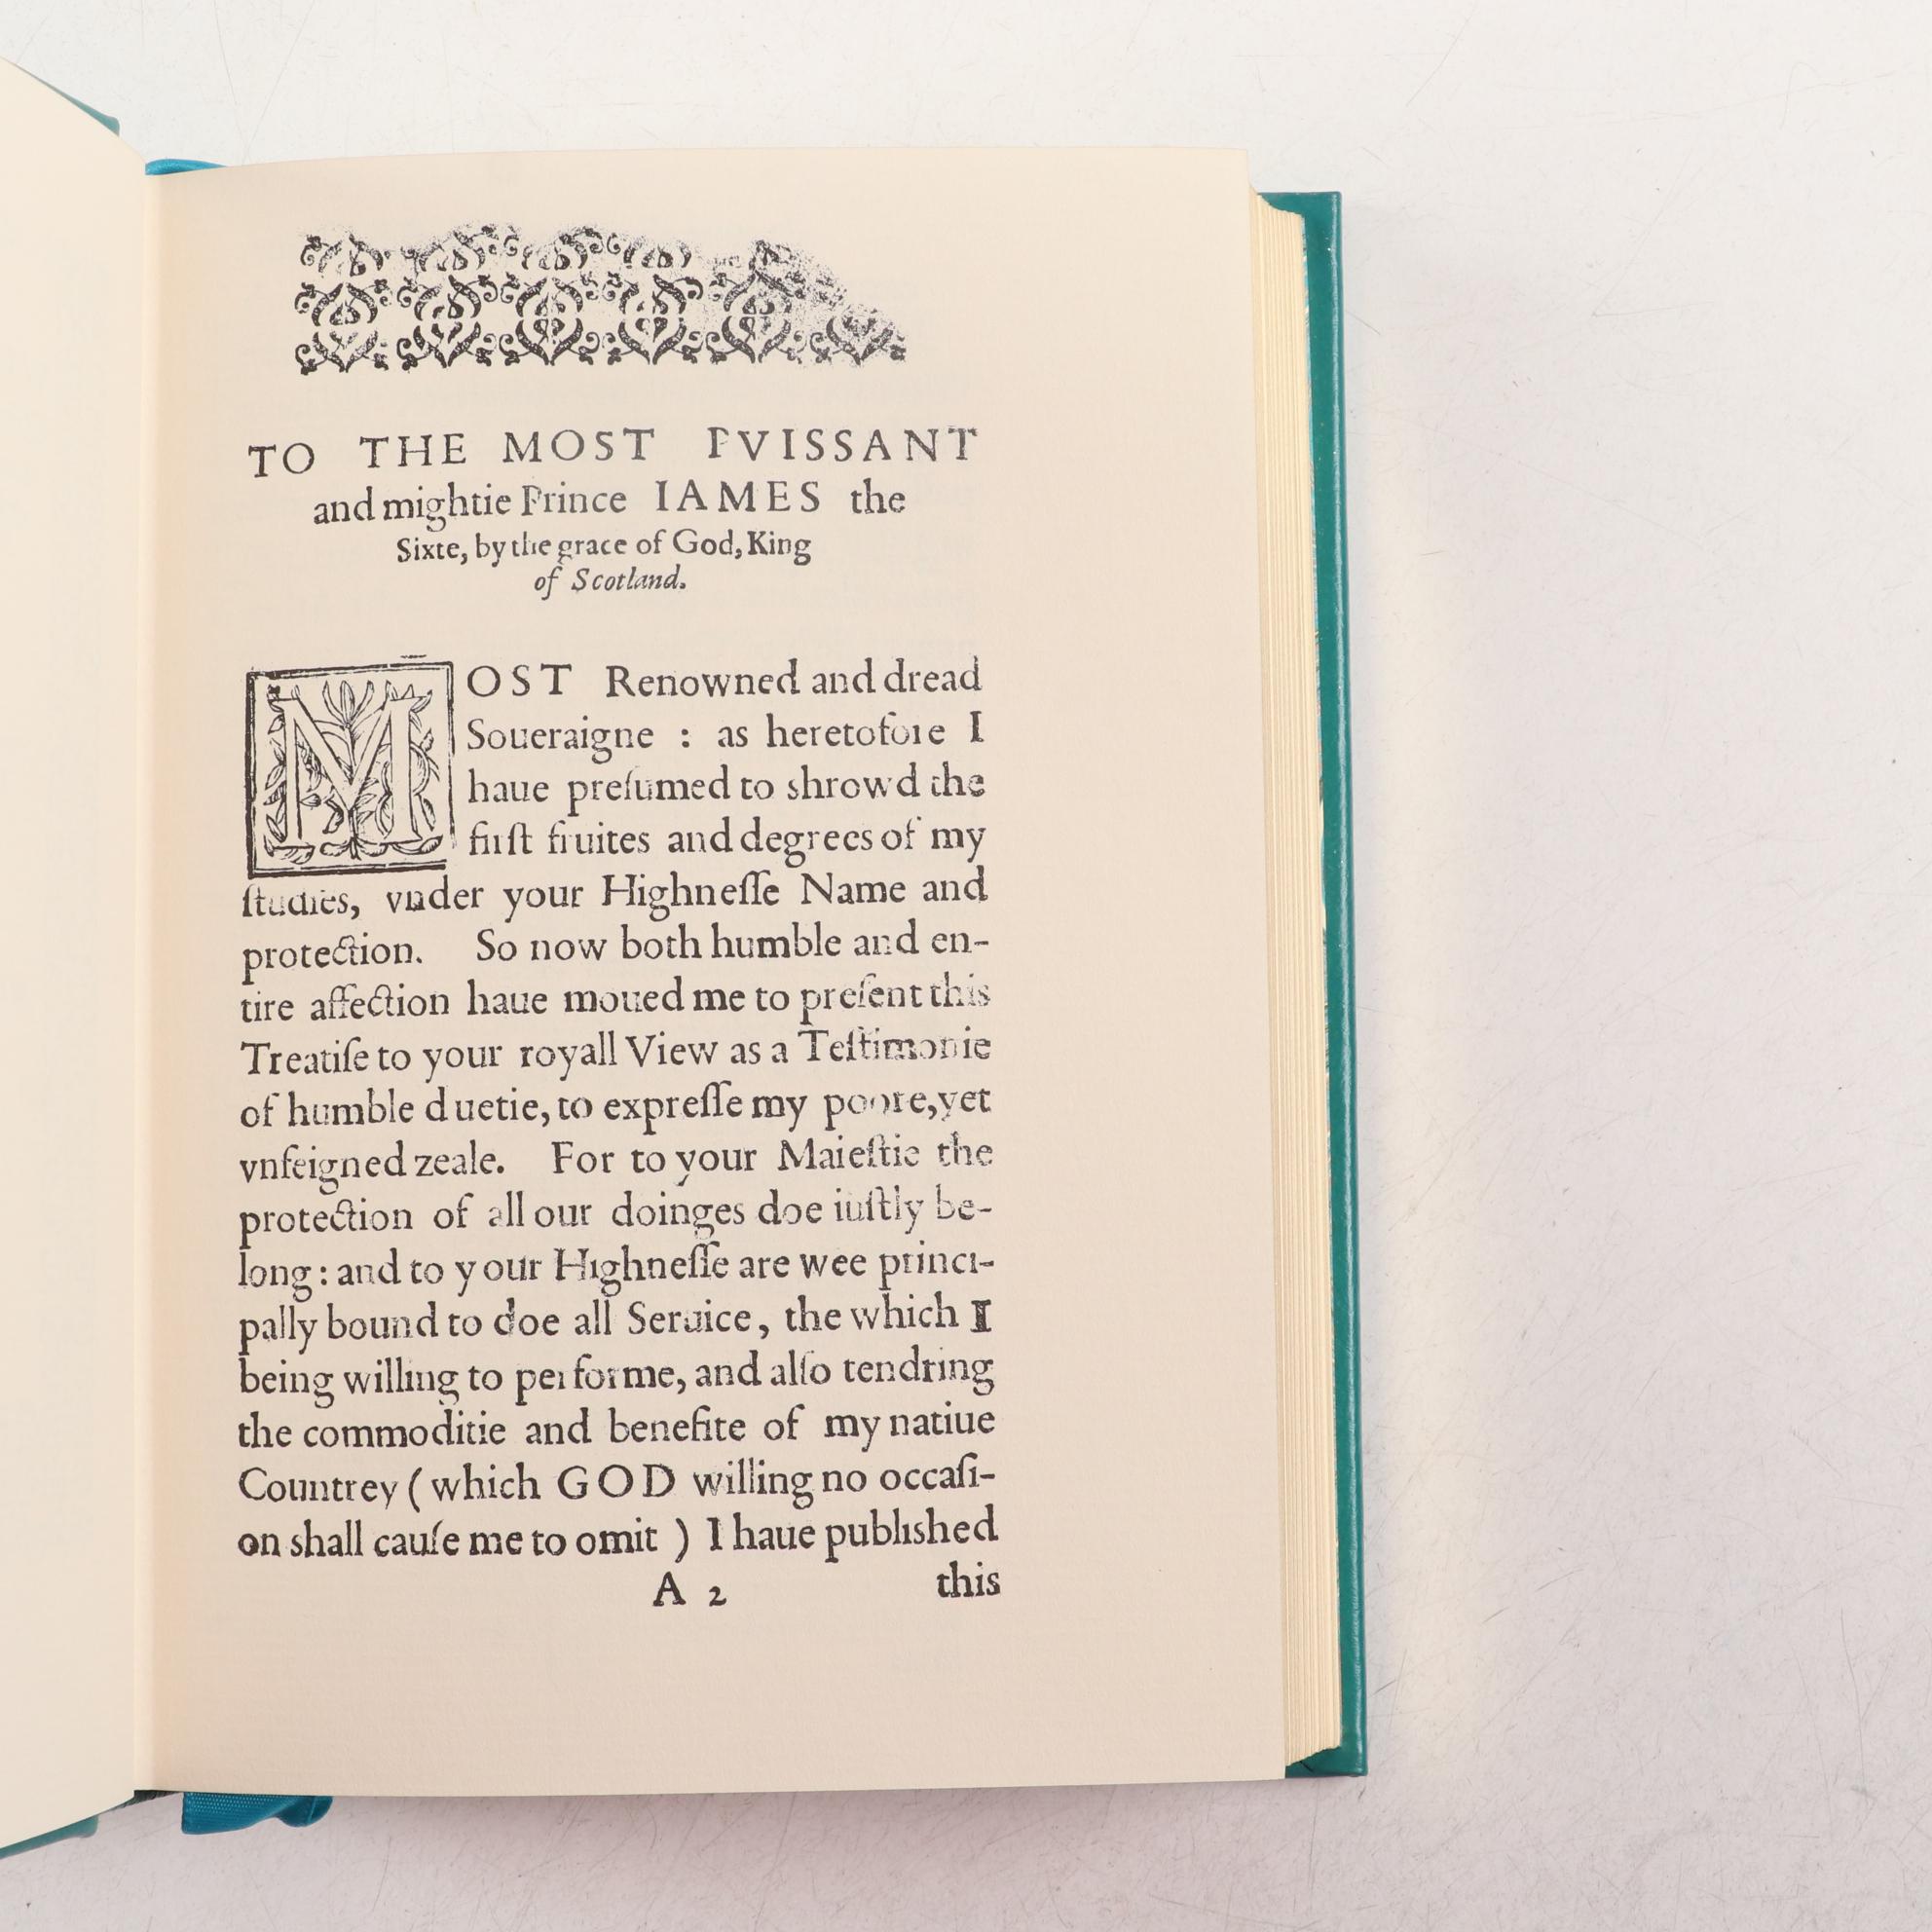 TO THE MOST PVISSANT
and mightie Prince IAMES the
Sixte, by the grace of God, King
of Scotland.
MOST Renowned and dread
Soueraigne : as heretofore I
haue preſumed to shrowd the
firſt fruites and degrees of my
ſtudies, vnder your Highneſſe Name and
protection. So now both humble and en-
tire affection haue moued me to preſent this
Treatiſe to your royall View as a Teſtimonie
of humble duetie, to expreſſe my poore, yet
vnfeigned zeale. For to your Maieſtie the
protection of all our doinges doe iuſtly be-
long : and to your Highneſſe are wee princi-
pally bound to doe all Seruice, the which I
being willing to performe, and alſo tendring
the commoditie and benefite of my natiue
Countrey ( which GOD willing no occaſi-
on shall cauſe me to omit ) I haue published
A 2 this